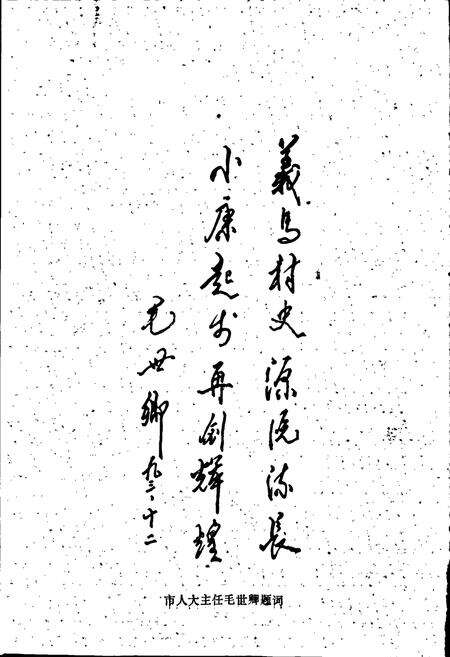 義乌村史源远流長
小康起步再创辉煌
毛世卿 九三·十二
市人大主任毛世卿题词